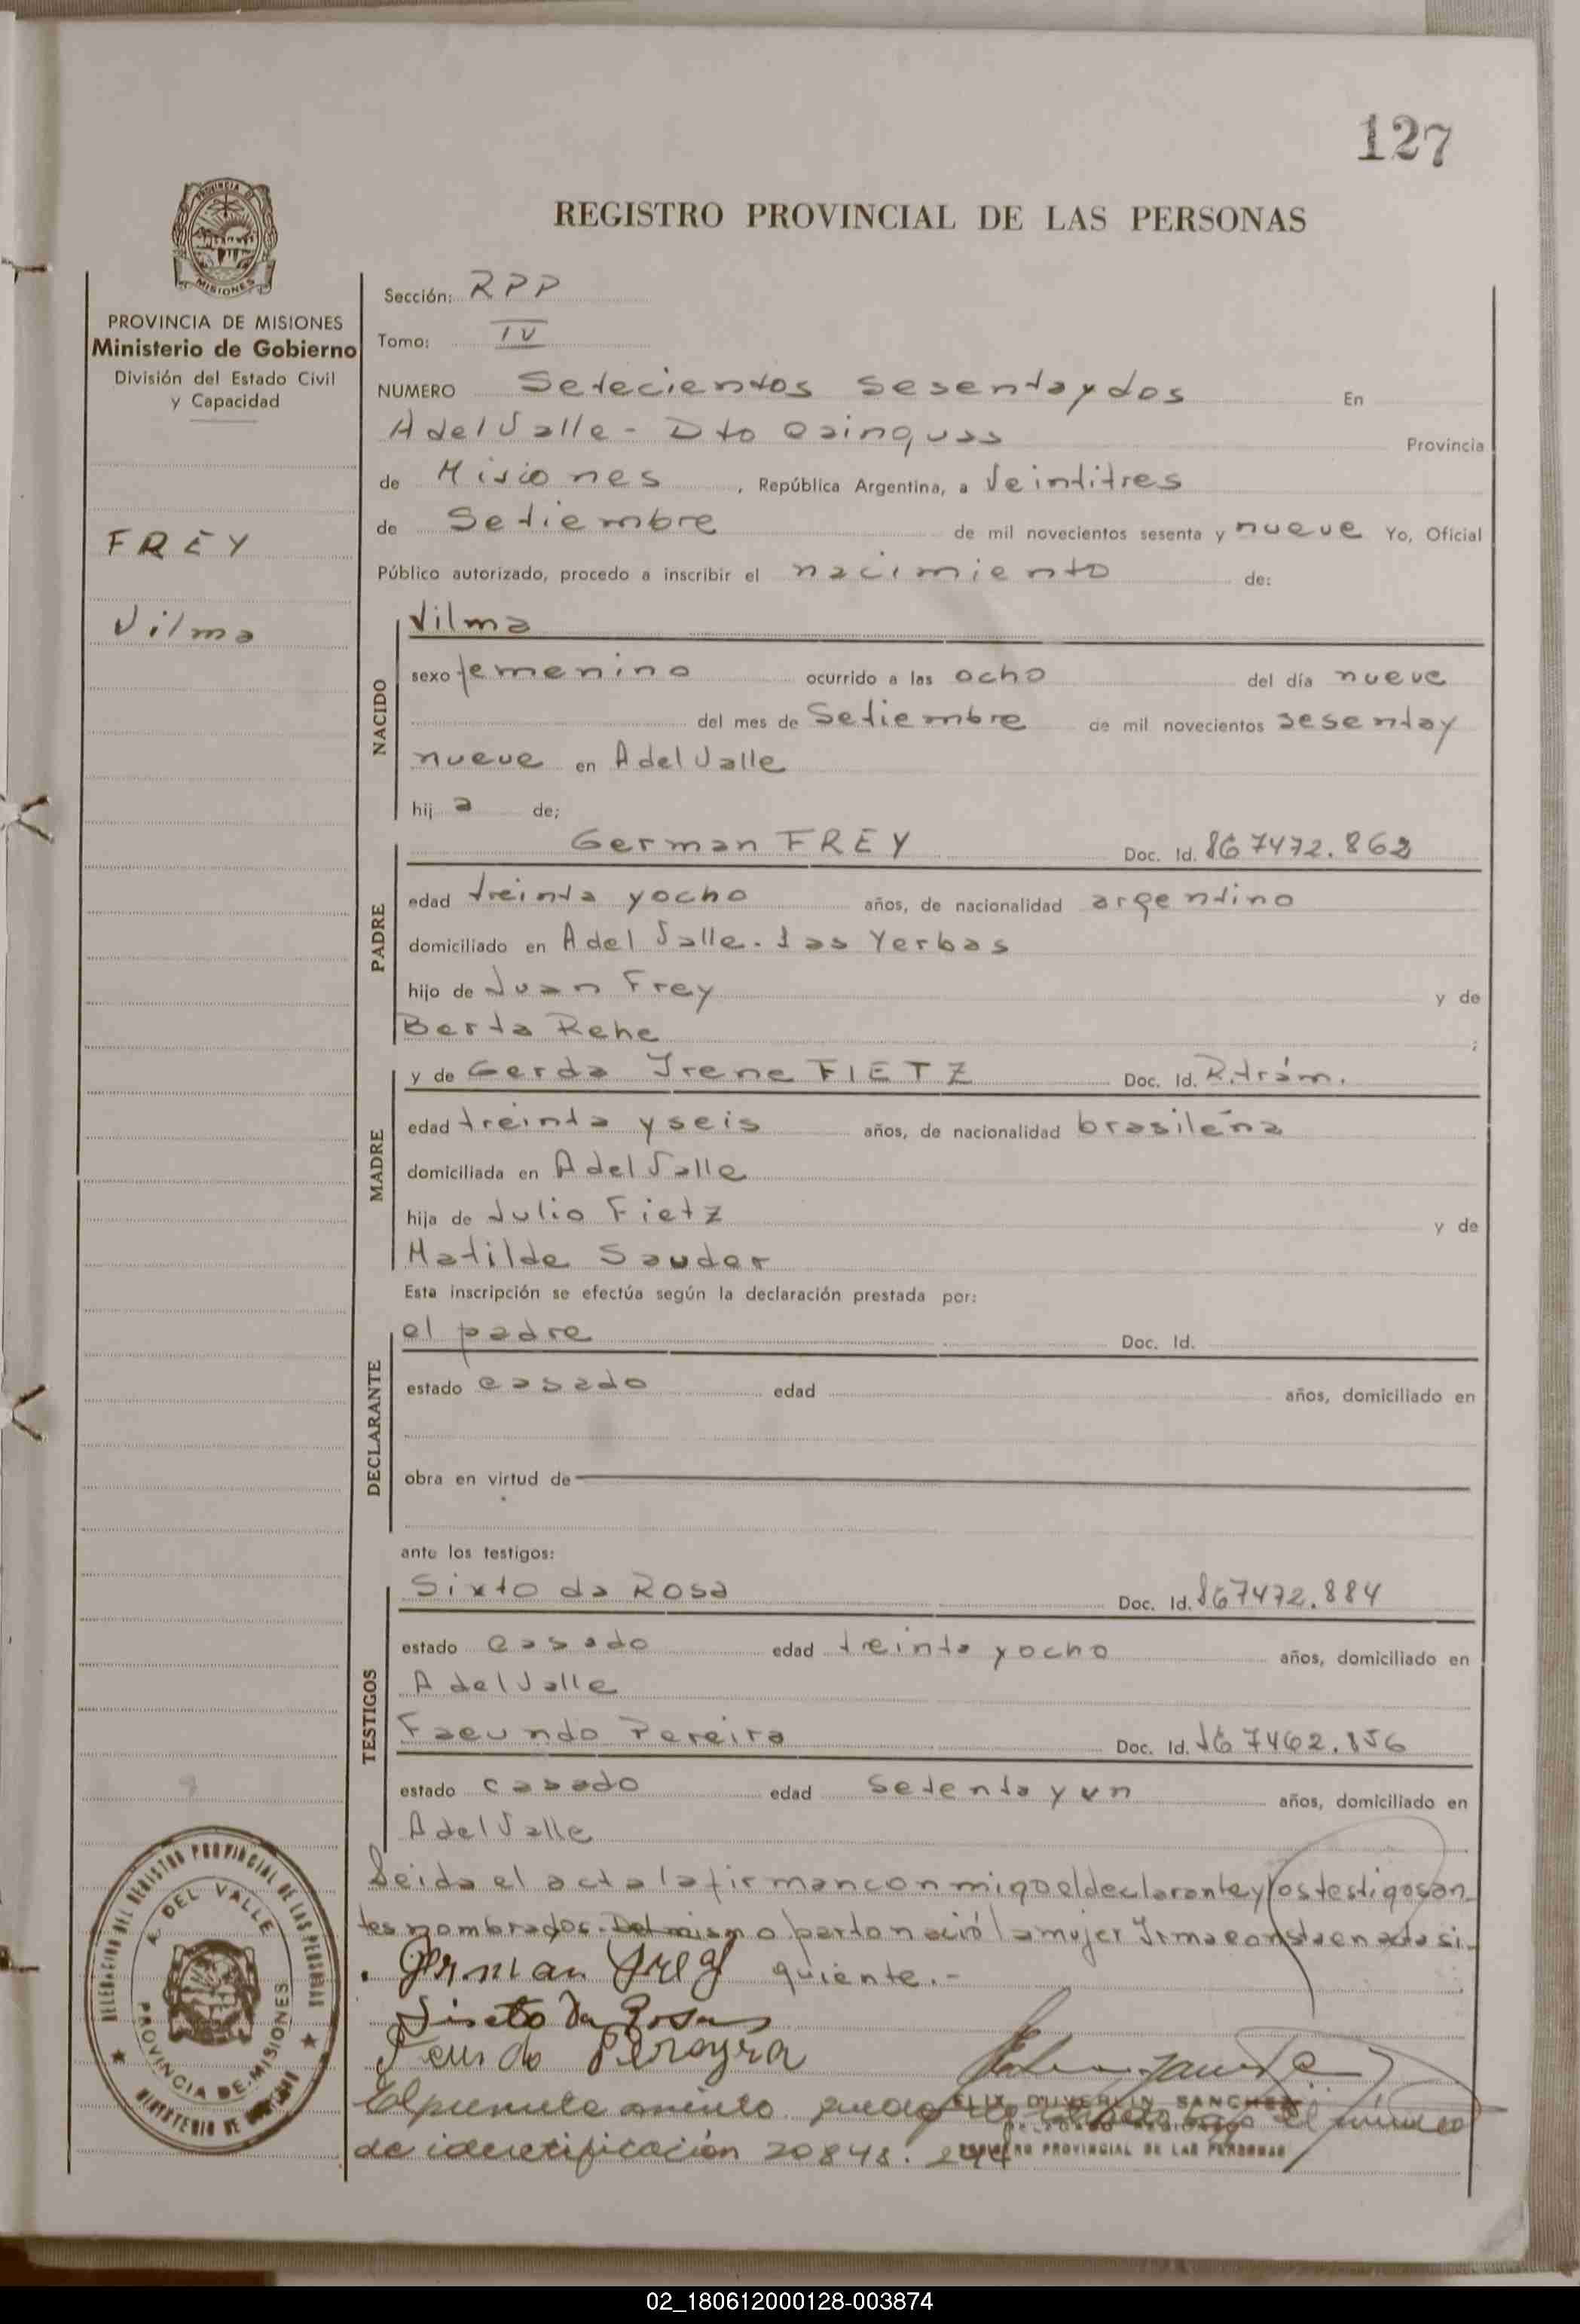 127
REGISTRO PROVINCIAL DE LAS PERSONAS
PROVINCIA DE MISIONES
Ministerio de Gobierno
División del Estado Civil
y Capacidad
FREY
Vilma
Sección: RPP
Tomo: IV
NUMERO Setecientos sesentaydos En
A del Valle - Dto Cainguas Provincia
de Misiones, República Argentina, a Veintitres
de Setiembre de mil novecientos sesenta y nueve Yo, Oficial
Público autorizado, procedo a inscribir el nacimiento de:
NACIDO
Vilma
sexo femenino ocurrido a las ocho del día nueve
del mes de Setiembre de mil novecientos sesentay
nueve en A del Valle
hija de;
PADRE
German FREY Doc. Id. 867472.862
edad treinta yocho años, de nacionalidad argentino
domiciliado en A del Valle. Las Yerbas
hijo de Juan Frey y de
Berta Rehe
MADRE
y de Gerda Irene FIETZ Doc. Id. R.trám.
edad treinta y seis años, de nacionalidad brasileña
domiciliada en A del Valle
hija de Julio Fietz y de
Matilde Sauder
Esta inscripción se efectúa según la declaración prestada por:
DECLARANTE
el padre Doc. Id.
estado casado edad años, domiciliado en
obra en virtud de
ante los testigos:
TESTIGOS
Sixto da Rosa Doc. Id. 867472.884
estado casado edad treinta yocho años, domiciliado en
A del Valle
Facundo Pereira Doc. Id. 167462.856
estado casado edad setenta y un años, domiciliado en
A del Valle
Leida el acta la firman conmigo el declarante y los testigos an-
tes nombrados. Del mismo parto nació la mujer Irma consta en acta si-
guiente.-
German Frey
Sixto Da Rosa
Pereyra
DELEGACION DEL REGISTRO PROVINCIAL DE LAS PERSONAS
A. DEL VALLE
PROVINCIA DE MISIONES
MINISTERIO DE GOBIERNO
SANCHEZ
REGISTRO PROVINCIAL DE LAS PERSONAS
El presente queda el número
de identificación 20848.
02_180612000128-003874